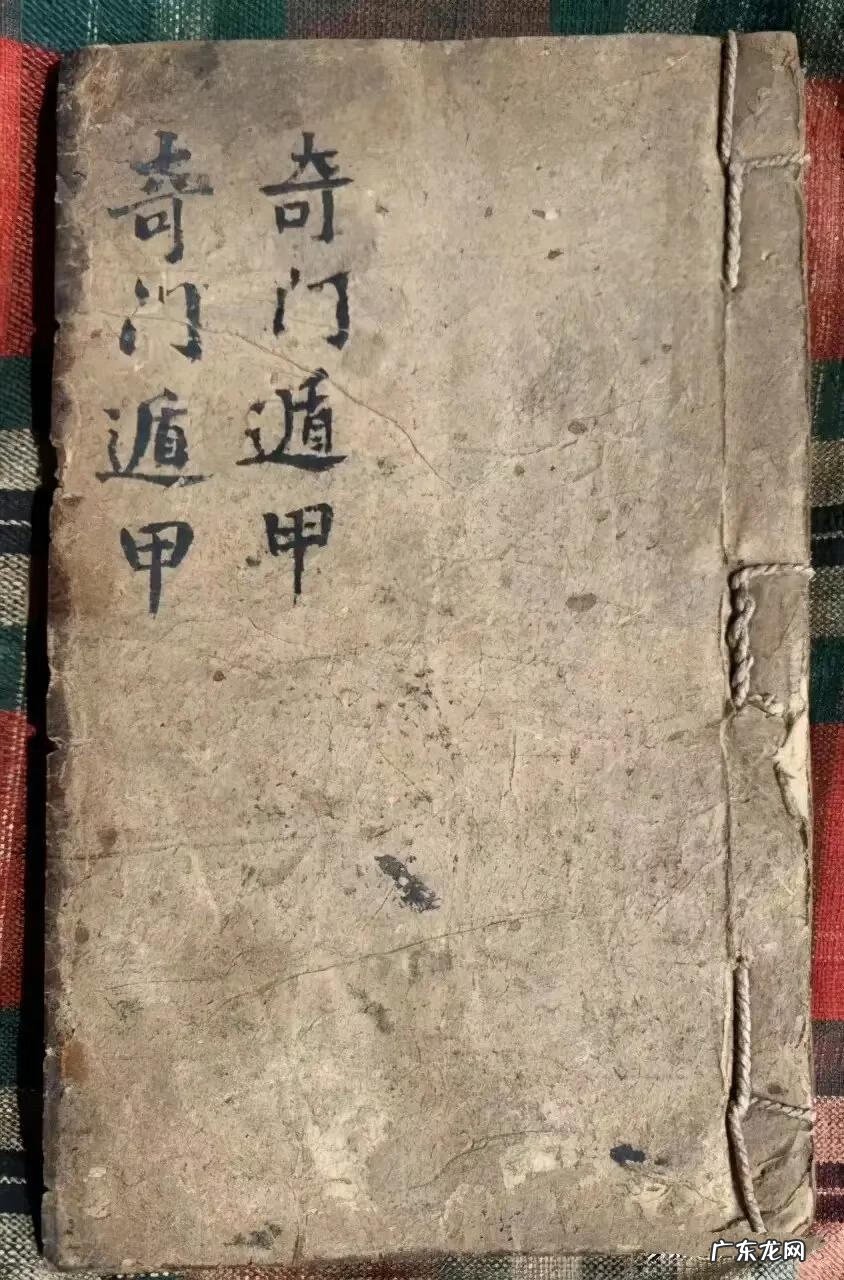 奇门遁甲
奇门遁甲
广东龙网